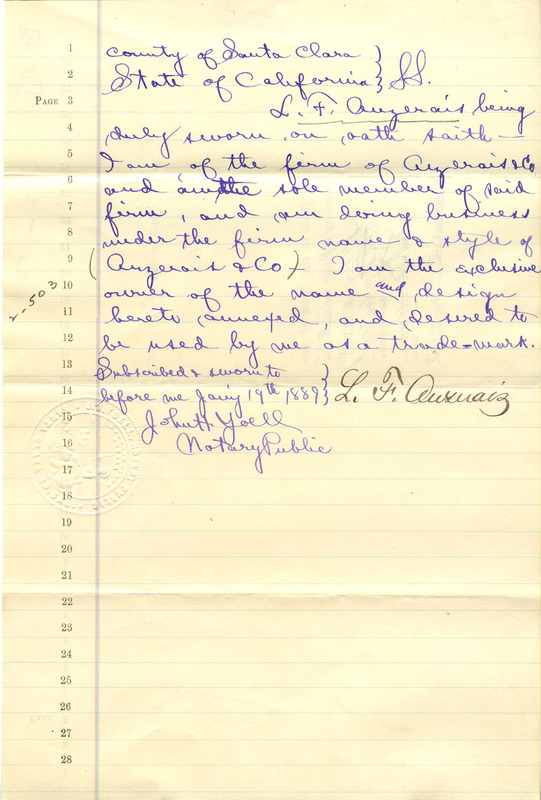 1 County of Santa Clara }
2 State of California } SS.
PAGE 3 L. F. Auzerais being
4 duly sworn on oath saith —
5 I am of the firm of Auzerais & Co
6 and am the sole member of said
7 firm, and am doing business
8 under the firm name & style of
9 (Auzerais & Co) – I am the exclusive
2-503
10 owner of the name and design
11 hereto annexed, and desired to
12 be used by me as a trade-mark.
13 Subscribed & sworn to }
14 before me Jan'y 19th 1889 } L. F. Auzerais
15 John H Yoell
16 Notary Public
17
18
19
20
21
22
23
24
25
26
27
28